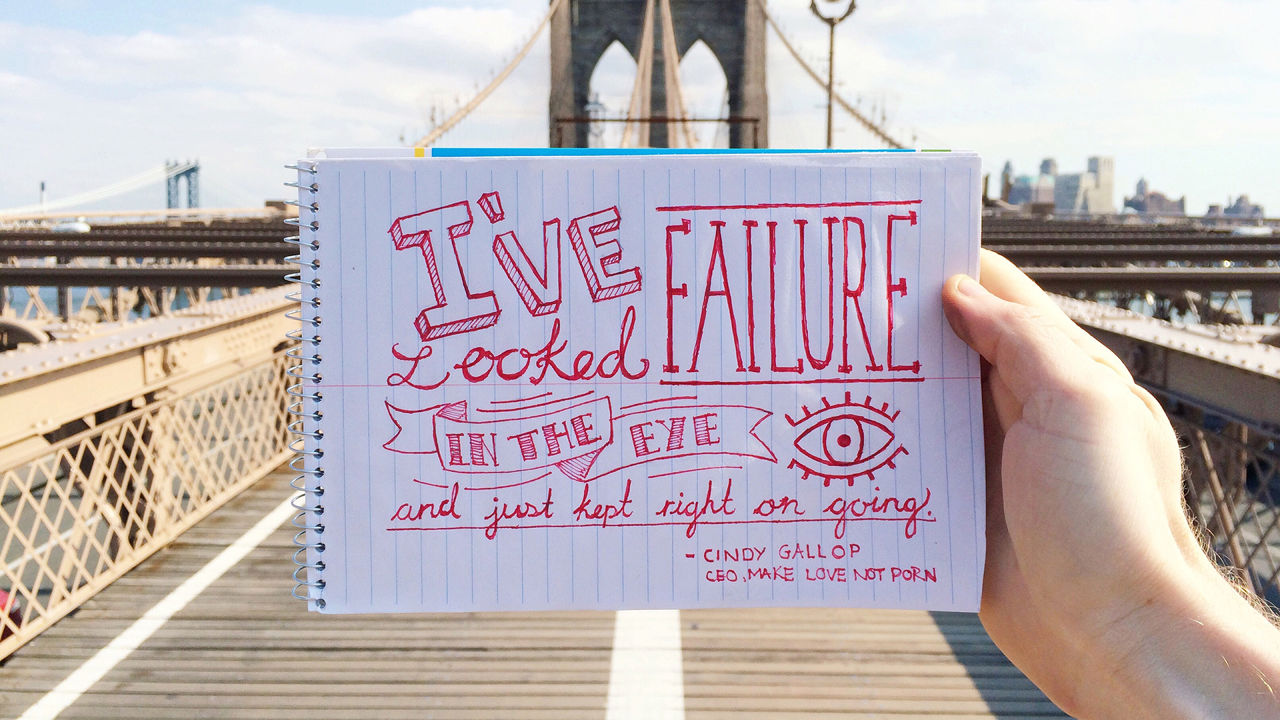 I'VE
Looked
FAILURE
IN THE EYE
and just kept right on going!
- CINDY GALLOP
CEO, MAKE LOVE NOT PORN